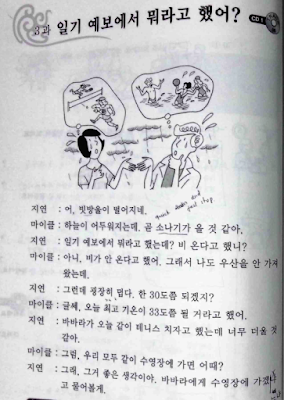 3과 일기 예보에서 뭐라고 했어?
CD 1
지연 : 어, 빗방울이 떨어지네.
마이클 : 하늘이 어두워지는데. 곧 소나기가 올 것 같아.
지연 : 일기 예보에서 뭐라고 했는데? 비 온다고 했니?
마이클 : 아니, 비가 안 온다고 했어. 그래서 나도 우산을 안 가져
왔는데.
지연 : 그런데 굉장히 덥다. 한 30도쯤 되겠지?
마이클 : 글쎄, 오늘 최고 기온이 33도쯤 될 거라고 했어.
지연 : 바바라가 오늘 같이 테니스 치자고 했는데 너무 더울 것
같아.
마이클 : 그럼, 우리 모두 같이 수영장에 가면 어때?
지연 : 그래, 그거 좋은 생각이야. 바바라에게 수영장에
고 물어볼게.